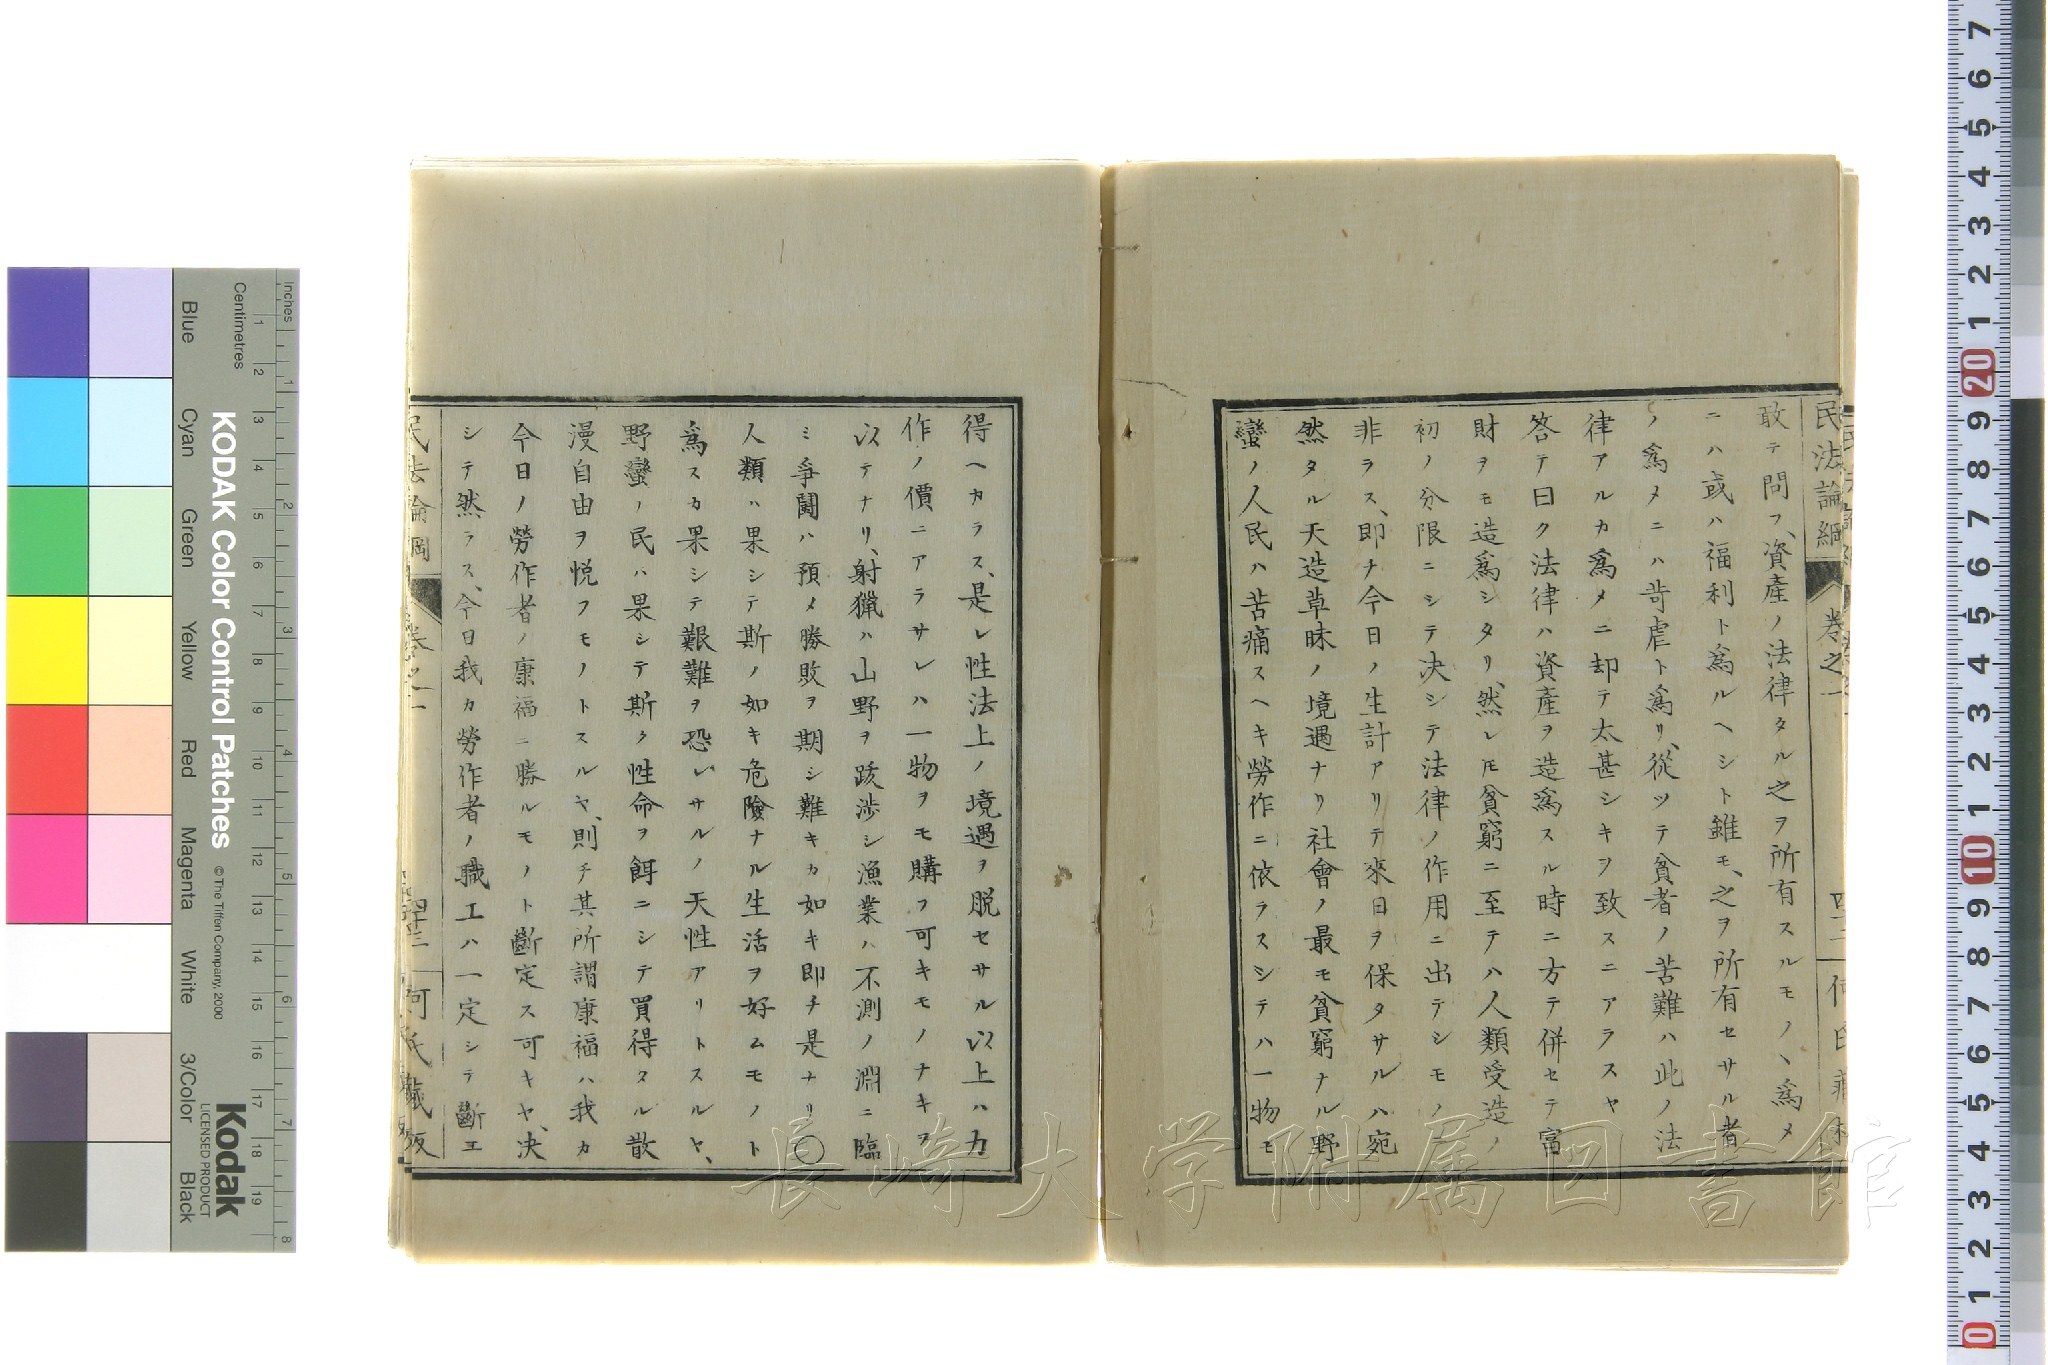 民法論綱 卷之一 四十二 何氏藏板
敢テ問フ、資產ノ法律タル之ヲ所有スルモノヽ爲メ
ニハ或ハ福利ト爲ルヘシト雖モ、之ヲ所有セサル者
ノ爲メニハ苛虐ト爲リ、從ツテ貧者ノ苦難ハ此ノ法
律アルカ爲メニ却テ太甚シキヲ致スニアラスヤ
答テ曰ク法律ハ資產ヲ造爲スル時ニ方テ併セテ富
財ヲモ造爲シタリ、然レ𪜈貧窮ニ至テハ人類受造ノ
初ノ分限ニシテ决シテ法律ノ作用ニ出テシモノ
非ラス、即チ今日ノ生計アリテ來日ヲ保タサルハ宛
然タル天造草昧ノ境遇ナリ社會ノ最モ貧窮ナル野
蠻ノ人民ハ苦痛スヘキ勞作ニ依ラスシテハ一物モ
得ヘカラス、是レ性法上ノ境遇ヲ脱セサル以上ハ力
作ノ價ニアラサレハ一物ヲモ購フ可キモノナキヲ
以テナリ、射獵ハ山野ヲ跋渉シ漁業ハ不測ノ淵ニ臨
ミ爭鬪ハ預メ勝敗ヲ期シ難キカ如キ即チ是ナリ○
人類ハ果シテ斯ノ如キ危險ナル生活ヲ好ムモノト
爲スカ果シテ艱難ヲ恐レサルノ天性アリトスルヤ、
野蠻ノ民ハ果シテ斯ク性命ヲ餌ニシテ買得タル散
漫自由ヲ悦フモノトスルヤ、則チ其所謂康福ハ我カ
今日ノ勞作者ノ康福ニ勝ルモノト斷定ス可キヤ、决
シテ然ラス、今日我カ勞作者ノ職工ハ一定シテ斷エ
民法論綱 卷之一 四十三 何氏藏板
長崎大学附属図書館
KODAK Color Control Patches
© The Tiffen Company, 2000
Kodak
LICENSED PRODUCT
Inches
Centimetres
Blue Cyan Green Yellow Red Magenta White 3/Color Black